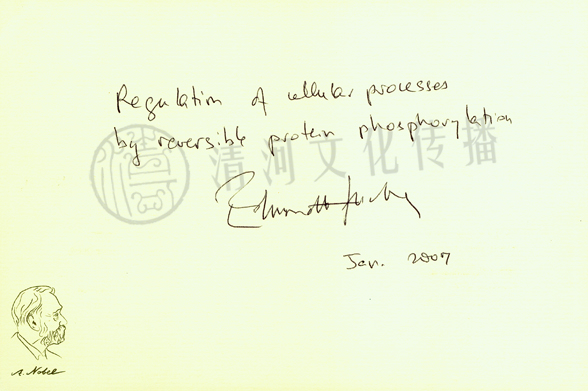 Regulation of cellular processes
by reversible protein phosphorylation
清河文化传播
Edmond Fischer
Jan. 2007
A. Nobel